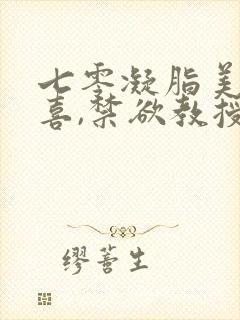 七零凝脂美
喜,禁欲教授
缪蓄生